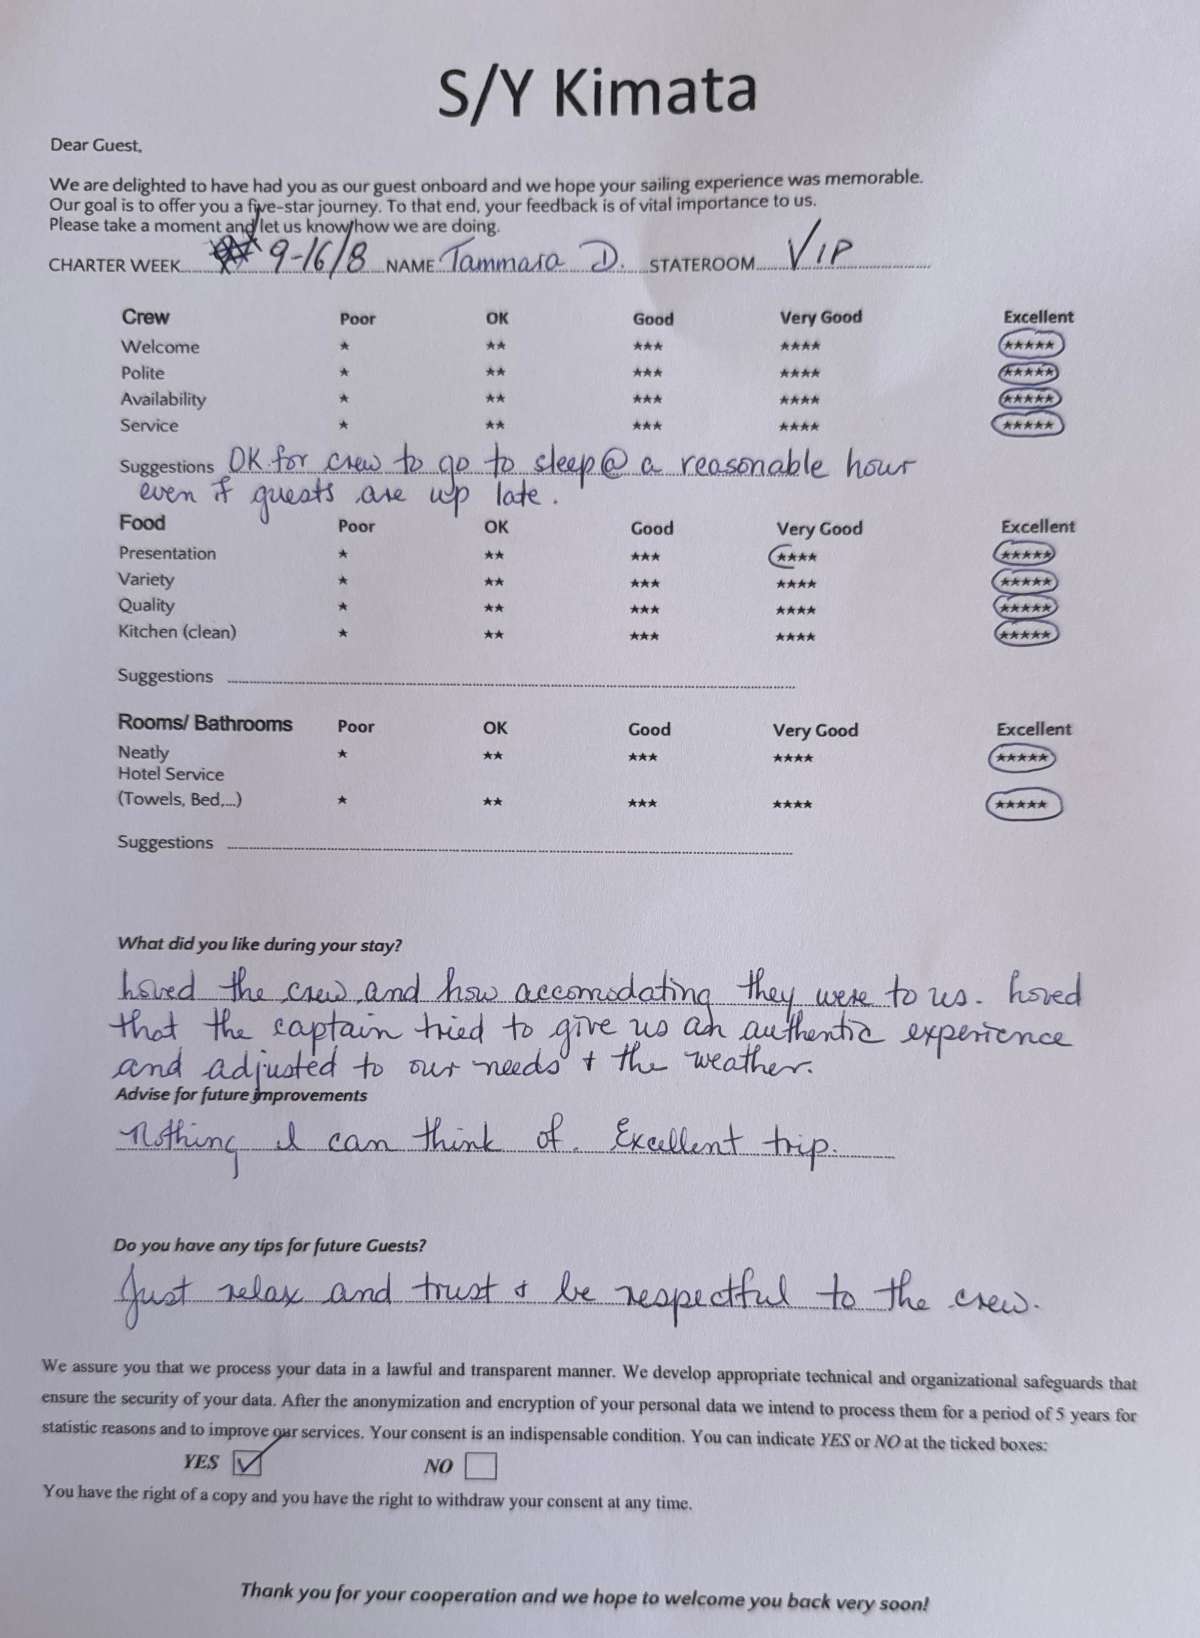 S/Y Kimata
Dear Guest,
We are delighted to have had you as our guest onboard and we hope your sailing experience was memorable.
Our goal is to offer you a five-star journey. To that end, your feedback is of vital importance to us.
Please take a moment and let us know how we are doing.
CHARTER WEEK 9-16/8 NAME Tammara D. STATEROOM VIP
Crew Poor OK Good Very Good Excellent
Welcome ★ ★★ ★★★ ★★★★ ★★★★★
Polite ★ ★★ ★★★ ★★★★ ★★★★★
Availability ★ ★★ ★★★ ★★★★ ★★★★★
Service ★ ★★ ★★★ ★★★★ ★★★★★
Suggestions OK for crew to go to sleep @ a reasonable hour
even if guests are up late.
Food Poor OK Good Very Good Excellent
Presentation ★ ★★ ★★★ ★★★★ ★★★★★
Variety ★ ★★ ★★★ ★★★★ ★★★★★
Quality ★ ★★ ★★★ ★★★★ ★★★★★
Kitchen (clean) ★ ★★ ★★★ ★★★★ ★★★★★
Suggestions
Rooms/ Bathrooms Poor OK Good Very Good Excellent
Neatly ★ ★★ ★★★ ★★★★ ★★★★★
Hotel Service
(Towels, Bed,...) ★ ★★ ★★★ ★★★★ ★★★★★
Suggestions
What did you like during your stay?
Loved the crew and how accomodating they were to us. Loved
that the captain tried to give us an authentic experience
and adjusted to our needs + the weather.
Advise for future improvements
Nothing I can think of. Excellent trip.
Do you have any tips for future Guests?
Just relax and trust + be respectful to the crew.
We assure you that we process your data in a lawful and transparent manner. We develop appropriate technical and organizational safeguards that
ensure the security of your data. After the anonymization and encryption of your personal data we intend to process them for a period of 5 years for
statistic reasons and to improve our services. Your consent is an indispensable condition. You can indicate YES or NO at the ticked boxes:
YES NO
You have the right of a copy and you have the right to withdraw your consent at any time.
Thank you for your cooperation and we hope to welcome you back very soon!